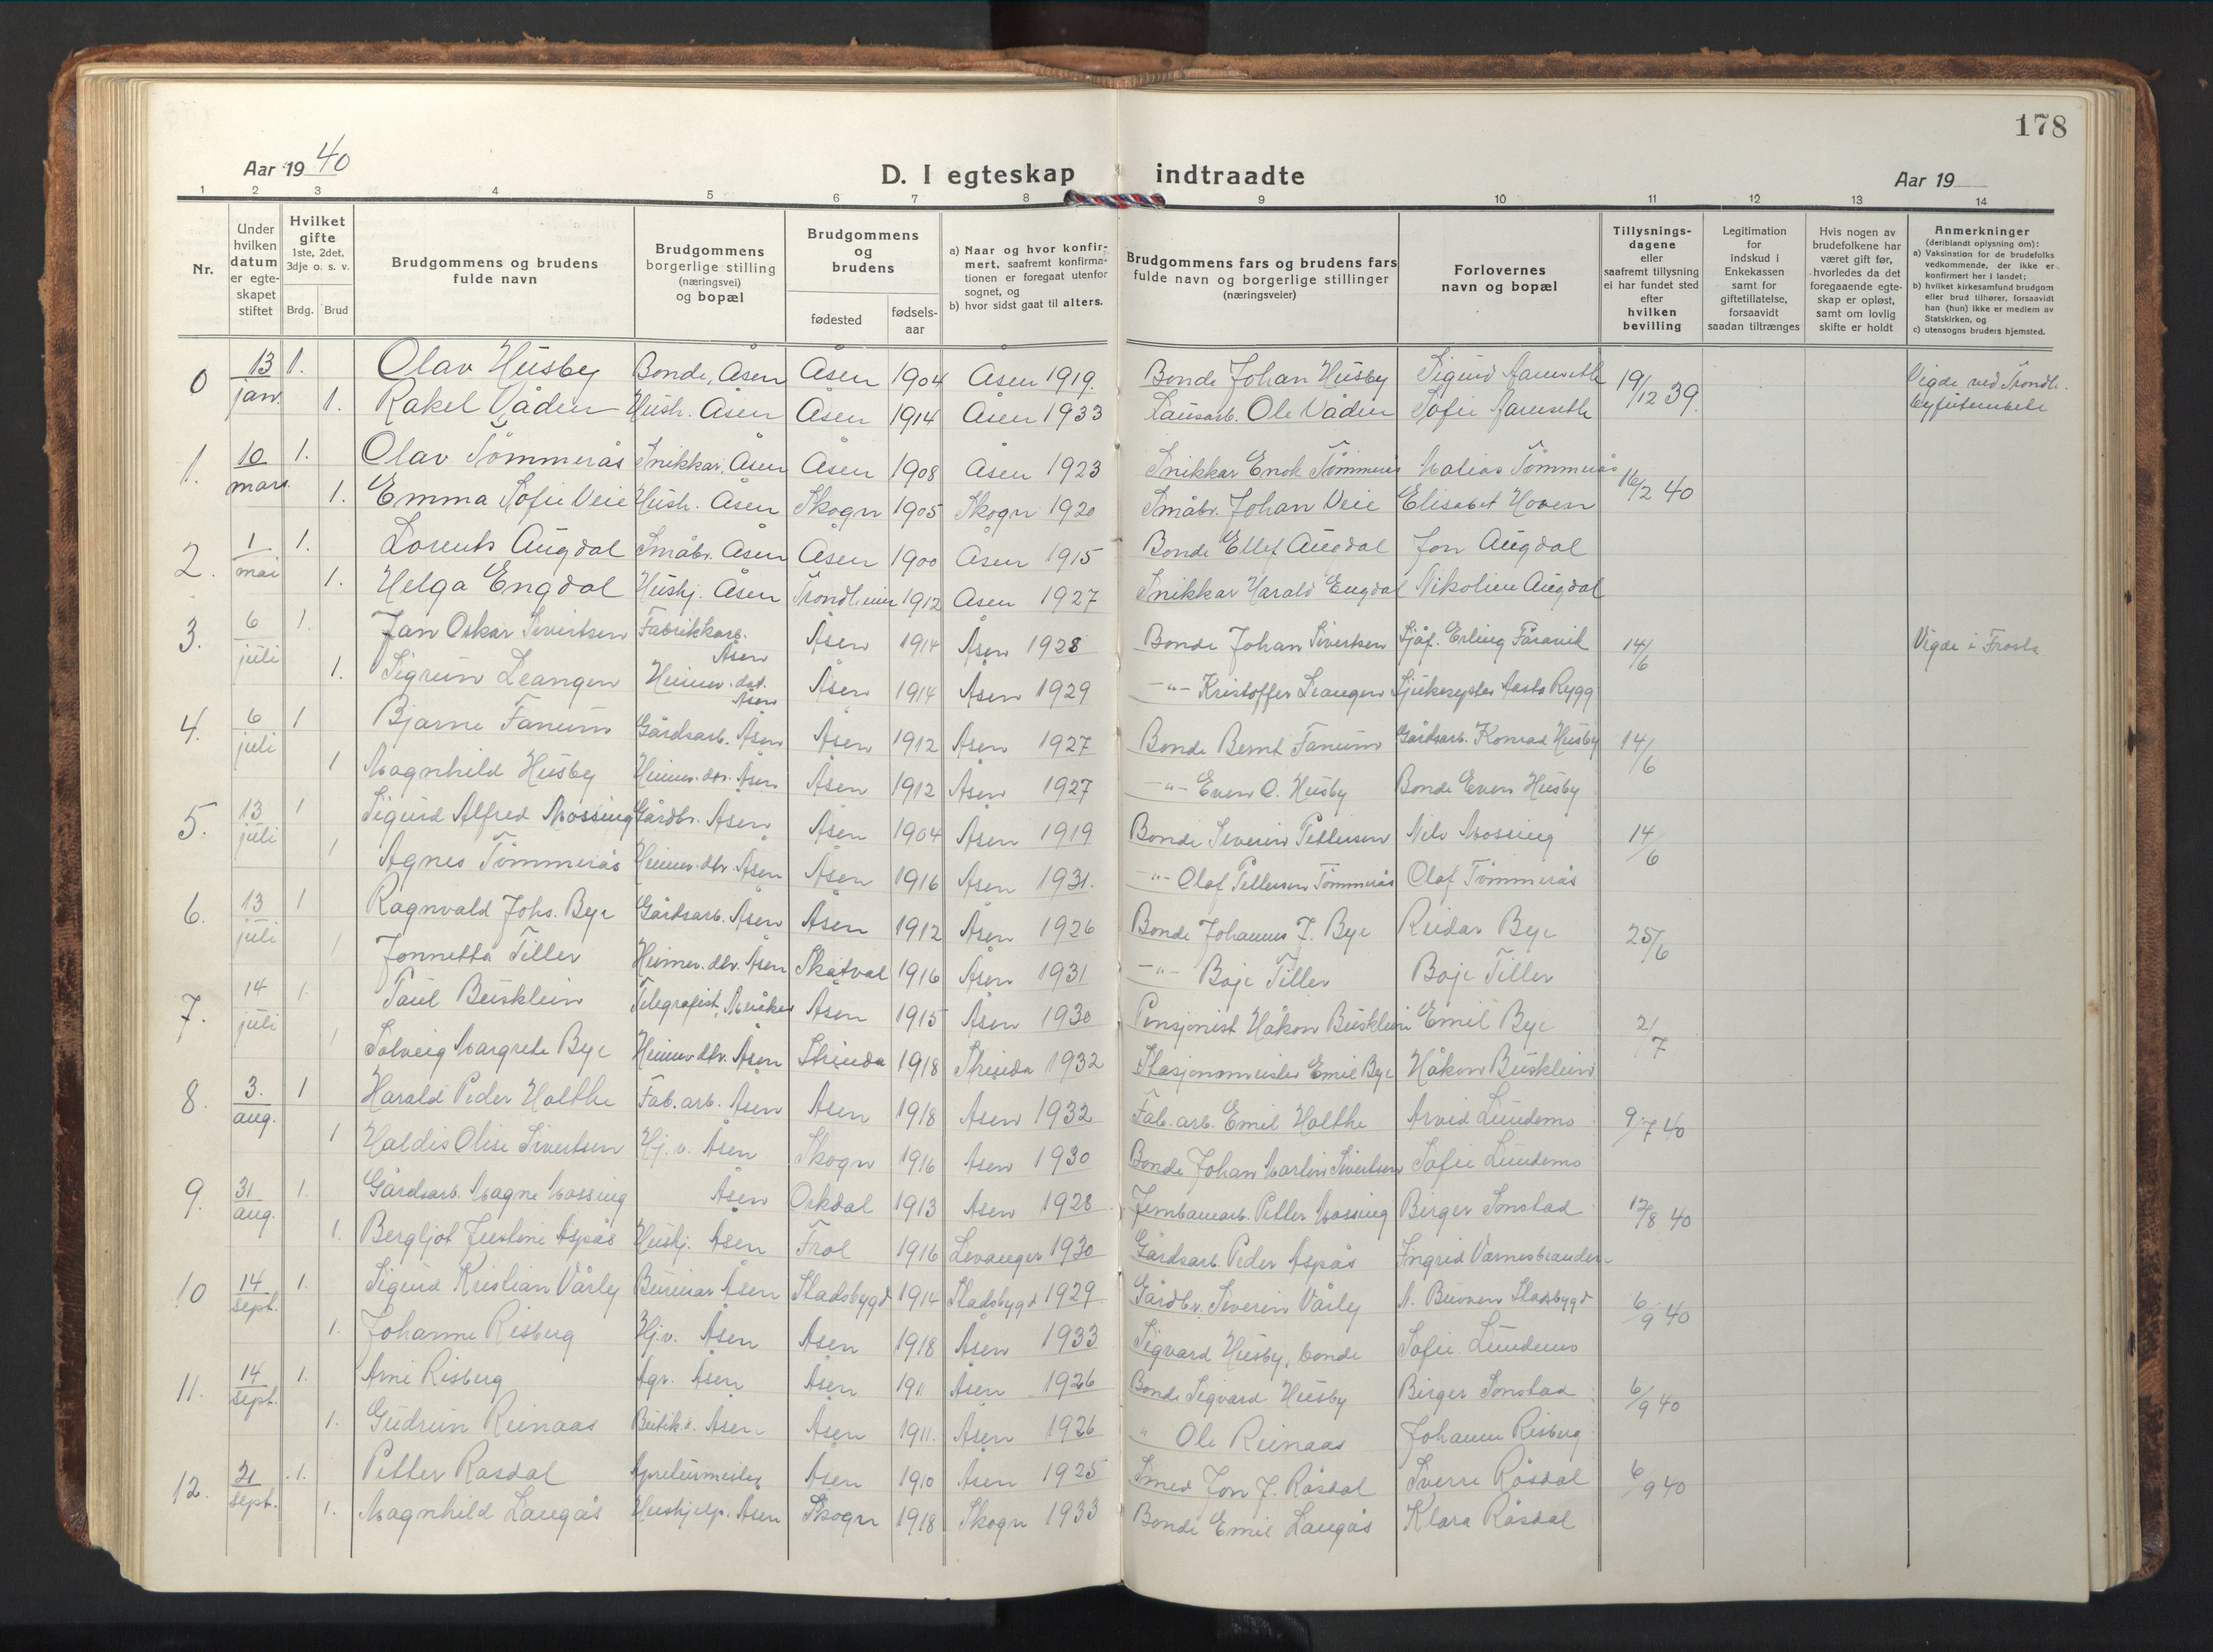 178
Aar 1940
D. I egteskap indtraadte
Aar 19
1 2 3 4 5 6 7 8 9 10 11 12 13 14
Nr.
Under hvilken datum er egte-skapet stiftet
Hvilket gifte 1ste, 2det, 3dje o. s. v.
Brdg. Brud
Brudgommens og brudens fulde navn
Brudgommens borgerlige stilling (næringsvei) og bopæl
Brudgommens og brudens
fødested
fødsels-aar
a) Naar og hvor konfir-mert, saafremt konfirma-tionen er foregaat utenfor sognet, og
b) hvor sidst gaat til alters.
Brudgommens fars og brudens fars fulde navn og borgerlige stillinger (næringsveier)
Forlovernes navn og bopæl
Tillysnings-dagene eller saafremt tillysning ei har fundet sted efter hvilken bevilling
Legitimation for indskud i Enkekassen samt for giftetillatelse, forsaavidt saadan tiltrænges
Hvis nogen av brudefolkene har været gift før, hvorledes da det foregaaende egte-skap er opløst, samt om lovlig skifte er holdt
Anmerkninger (deriblandt oplysning om):
a) Vaksination for de brudefolks vedkommende, der ikke er konfirmert her i landet;
b) hvilket kirkesamfund brudgom eller brud tilhører, forsaavidt han (hun) ikke er medlem av Statskirken, og
c) utensogns bruders hjemsted.
0 13 jan. 1. Olav Husby Bonde, Åsen Åsen 1904 Åsen 1919. Bonde Johan Husby Sigurd 19/12 39. Vigde ved Trondh.
1. Rakel Våden Hush. Åsen Åsen 1914 Åsen 1933 Lausarb. Ole Våden Sofie
1. 10 mars 1. Olav Tömmerås Snikkar, Åsen Åsen 1908 Åsen 1923 Snikkar Enok Tömmerås Matias Tömmerås 16/2 40
1. Emma Sofie Veie Hush. Åsen Skogn 1905 Skogn 1920 Småbr. Johan Veie Elisabet Hoven
2. 1 mai 1. Lorents Augdal Småbr. Åsen Åsen 1900 Åsen 1915 Bonde Ellef Augdal Jon Augdal
1. Helga Engdal Hushj. Åsen Trondheim 1912 Åsen 1927 Snikkar Harald Engdal Nikoline Augdal
3. 6 juli 1. Jan Oskar Sivertsen Fabrikkarb. Åsen Åsen 1914 Åsen 1928 Bonde Johan Sivertsen Sjåf. Erling Fåravik 14/6 Vigde i Frosta
1. Sigrun Leangen Heimev. dot. Åsen Åsen 1914 Åsen 1929 -"- Kristoffer Leangen Sjukesyster Aasta Rygg
4. 6 juli 1 Bjarne Fanum Gårdsarb. Åsen Åsen 1912 Åsen 1927 Bonde Bernt Fanum Gårdsarb. Konrad Husby 14/6
1 Magnhild Husby Heimev. dtr. Åsen Åsen 1912 Åsen 1927 -"- Even O. Husby Bonde Even Husby
5. 13 juli 1 Sigurd Alfred Mossing Gårdbr. Åsen Åsen 1904 Åsen 1919 Bonde Severin Pettersen Nils Mossing 14/6
1 Agnes Tömmerås Heimev. dtr. Åsen Åsen 1916 Åsen 1931. -"- Olaf Pettersen Tömmerås Olaf Tömmerås
6. 13 juli 1 Ragnvald Johs. Bye Gårdsarb. Åsen Åsen 1912 Åsen 1926 Bonde Johannes J. Bye Reidar Bye 25/6
1 Jonnetta Tiller Heimev. dtr. Åsen Skatval 1916 Åsen 1931 -"- Boje Tiller Boje Tiller
7. 14 juli 1. Paul Busklein Telegrafist, Meråker Åsen 1915 Åsen 1930 Pensjonist Håkon Busklein Emil Bye 2/7
1 Solveig Margrete Bye Heimev dtr. Åsen Strinda 1918 Strinda 1932 Stasjonsmeister Emil Bye Håkon Busklein
8. 3. aug. 1 Harald Peder Holthe Fab. arb. Åsen Åsen 1918 Åsen 1932 Fab. arb. Emil Holthe Arvid Lundemo 9/7 40
1 Haldis Olise Sivertsen Hj. v. Åsen Skogn 1916 Åsen 1930 Bonde Johan Martin Sivertsen Sofie Lundemo
9. 31 aug. 1. Gårdsarb. Magne Mossing Åsen Orkdal 1913 Åsen 1928 Jernbanearb. Petter Mossing Birger Sonstad 12/8 40
1. Bergljot Justine Aspås Hushj. Åsen Frol 1916 Levanger 1930 Gårdsarb. Peder Aspås Ingrid
10 14 sept. 1. Sigurd Kristian Vårly Åsen Stadsbygd 1914 Stadsbygd 1929 Gårdbr. Severin Vårly Stadsbygd 6/9 40
1. Johanne Risberg Hj. v. Åsen Åsen 1918 Åsen 1933 Sigvard Husby, bonde Sofie Lundemo
11. 14 sept. 1. Arne Risberg Agr. Åsen Åsen 191 Åsen 1926 Bonde Sigvard Husby Birger Sonstad 6/9 40
1. Gudrun Reinaas Butikd. Åsen Åsen 1911. Åsen 1926 " Ole Reinaas Johanne Risberg
12. 21 sept. 1. Petter Rosdal Apreturmester Åsen 1910 Åsen 1925 Smed Jon J. Råsdal Sverre Råsdal 6/9 40
1. Magnhild Langås Hushjelp. Åsen Skogn 1918 Skogn 1933 Bonde Emil Langås Klara Råsdal